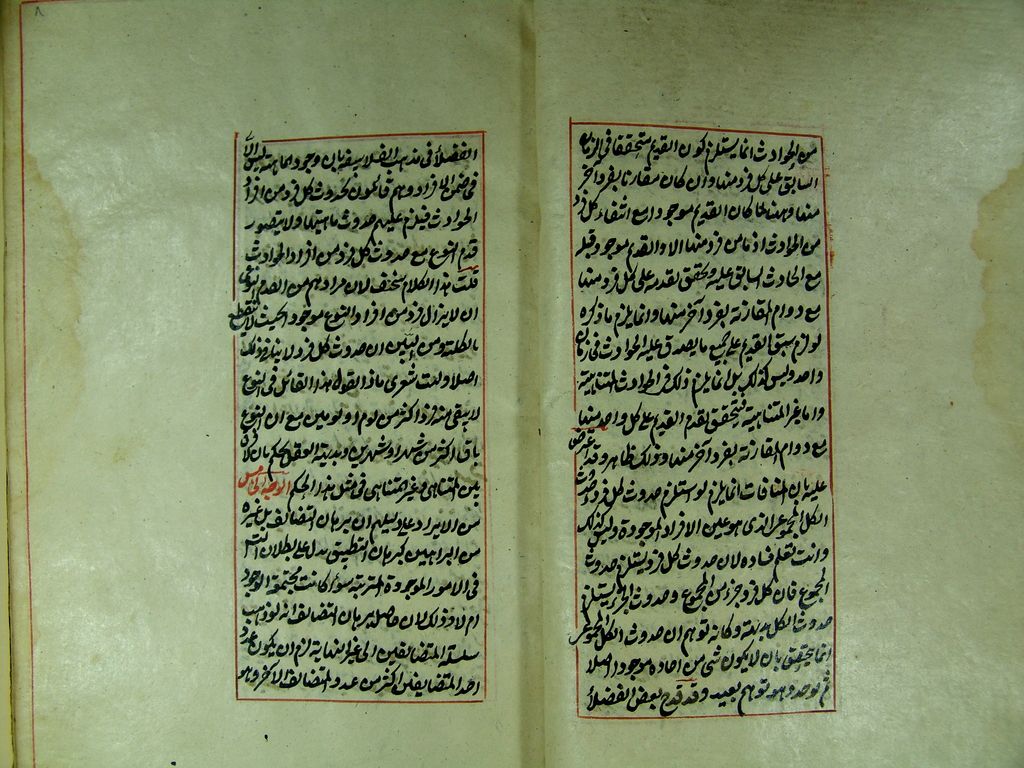 من الحوادث انما يستلزم كون القديم متحققا فى الزمان
السابق على كل فرد منها وان كان مقارنا بفرد آخر
منها وههنا كان القديم موجودا مع انتفاء كل فرد
من الحوادث اذ ما من فرد منها الا والقديم موجود قبله
مع الحادث السابق عليه فيتحقق تقدمه على كل فرد منها
مع دوام المقارنة بفرد آخر منها وانما يلزم ما ذكره
لو لزم سبق القديم على جميع ما يصدق عليه الحوادث فى زمان
واحد وليس كذلك بل انما يلزم ذلك فى الحوادث المتناهية
واما غير المتناهية فيتحقق تقدم القديم على كل واحد منها
مع دوام المقارنة بفرد آخر منها وذلك ظاهر وقد اعترض
عليه بان المنافات انما يلزم لو استلزم حدوث كل فرد حدوث
الكل المجموعى الذى هو عين الافراد الموجودة وليس كذلك
وانت تعلم فساده لان حدوث كل فرد يستلزم حدوث
المجموع فان كل فرد جزء من المجموع وحدوث الجزء يستلزم
حدوث الكل بديهة وكانه توهم ان حدوث الكل المجموعى
انما يتحقق بان لا يكون شئ من احاده موجودا اصلا
ثم توجد وهو توهم بعيد وقد قدح بعض الفضلاء
٨
الفضلاء فى مذهب الفلاسفة بان وجود الماهية ليس الا
فى ضمن الافراد وهم قائلون بحدوث كل فرد من افراد
الحوادث فيلزم عليهم حدوث ماهيتها ولا يتصور
قدم النوع مع حدوث كل فرد من افراد الحوادث
قلت هذا الكلام سخيف لان مرادهم من القدم النوعى
ان لا يزال فرد من افراد النوع موجودا بحيث لا ينقطع
بالكلية ومن البين ان حدوث كل فرد لا ينافى ذلك
اصلا وليت شعرى ماذا يقول هذا القائل فى النوع
لا يبقى منه فرد اكثر من يوم او يومين مع ان النوع
باق اكثر من شهر او شهرين وبديهة العقل يحكم بان لا فرق
بين المتناهى وغير متناهى فى مثل هذا الحكم الوجه الخامس
من الايراد على دليلهم ان برهان التضائف بل غيره
من البراهين كبرهان التطبيق يدل على بطلان التسلسل
فى الامور الموجودة المترتبة سواء كانت مجتمعة الوجود
ام لا وذلك لان حاصل برهان التضائف انه لو ذهب
سلسلة المتضايفين الى غير النهاية لزم ان يكون عدد
احد المتضايفين اكثر من عدد المتضائف الآخر وهو